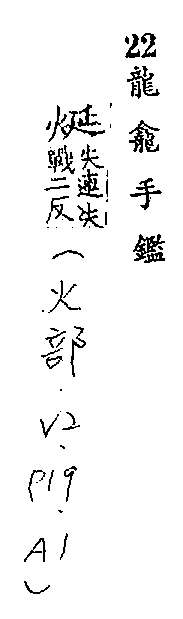 22龍龕手鑑
烻失連夬
戰二反
(火部.V2.P19.A1)